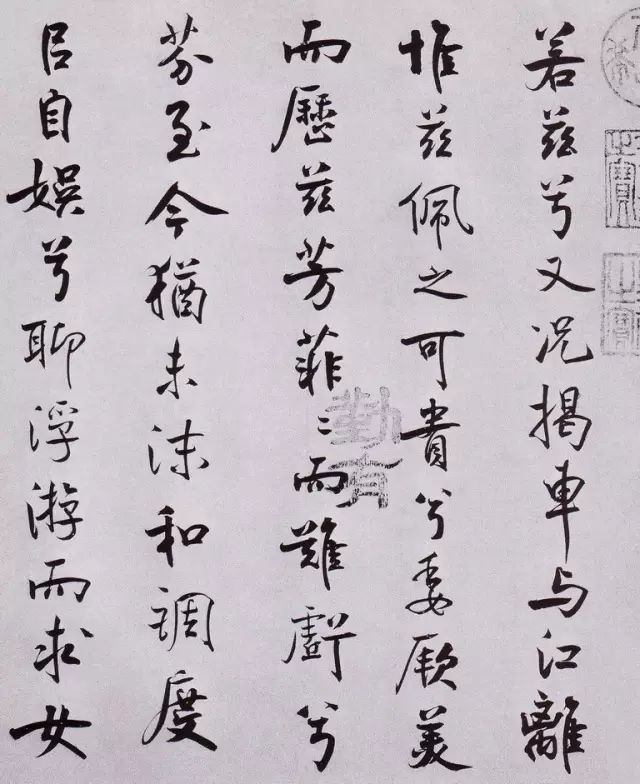 若茲兮又况揭車与江離
惟茲佩之可貴兮委厥美
而歷茲芳菲〻而難虧兮
芬至今猶未沬和調度
㠯自娛兮聊浮游而求女
勤有
之寶